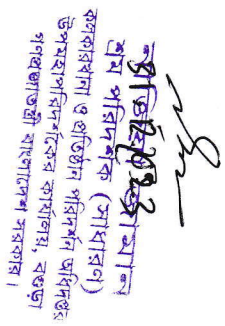 শ্রম পরিদর্শক (সাধারণ)
কলকারখানা ও প্রতিষ্ঠান পরিদর্শন অধিদপ্তর
উপমহাপরিদর্শকের কার্যালয়, বগুড়া
গণপ্রজাতন্ত্রী বাংলাদেশ সরকার।